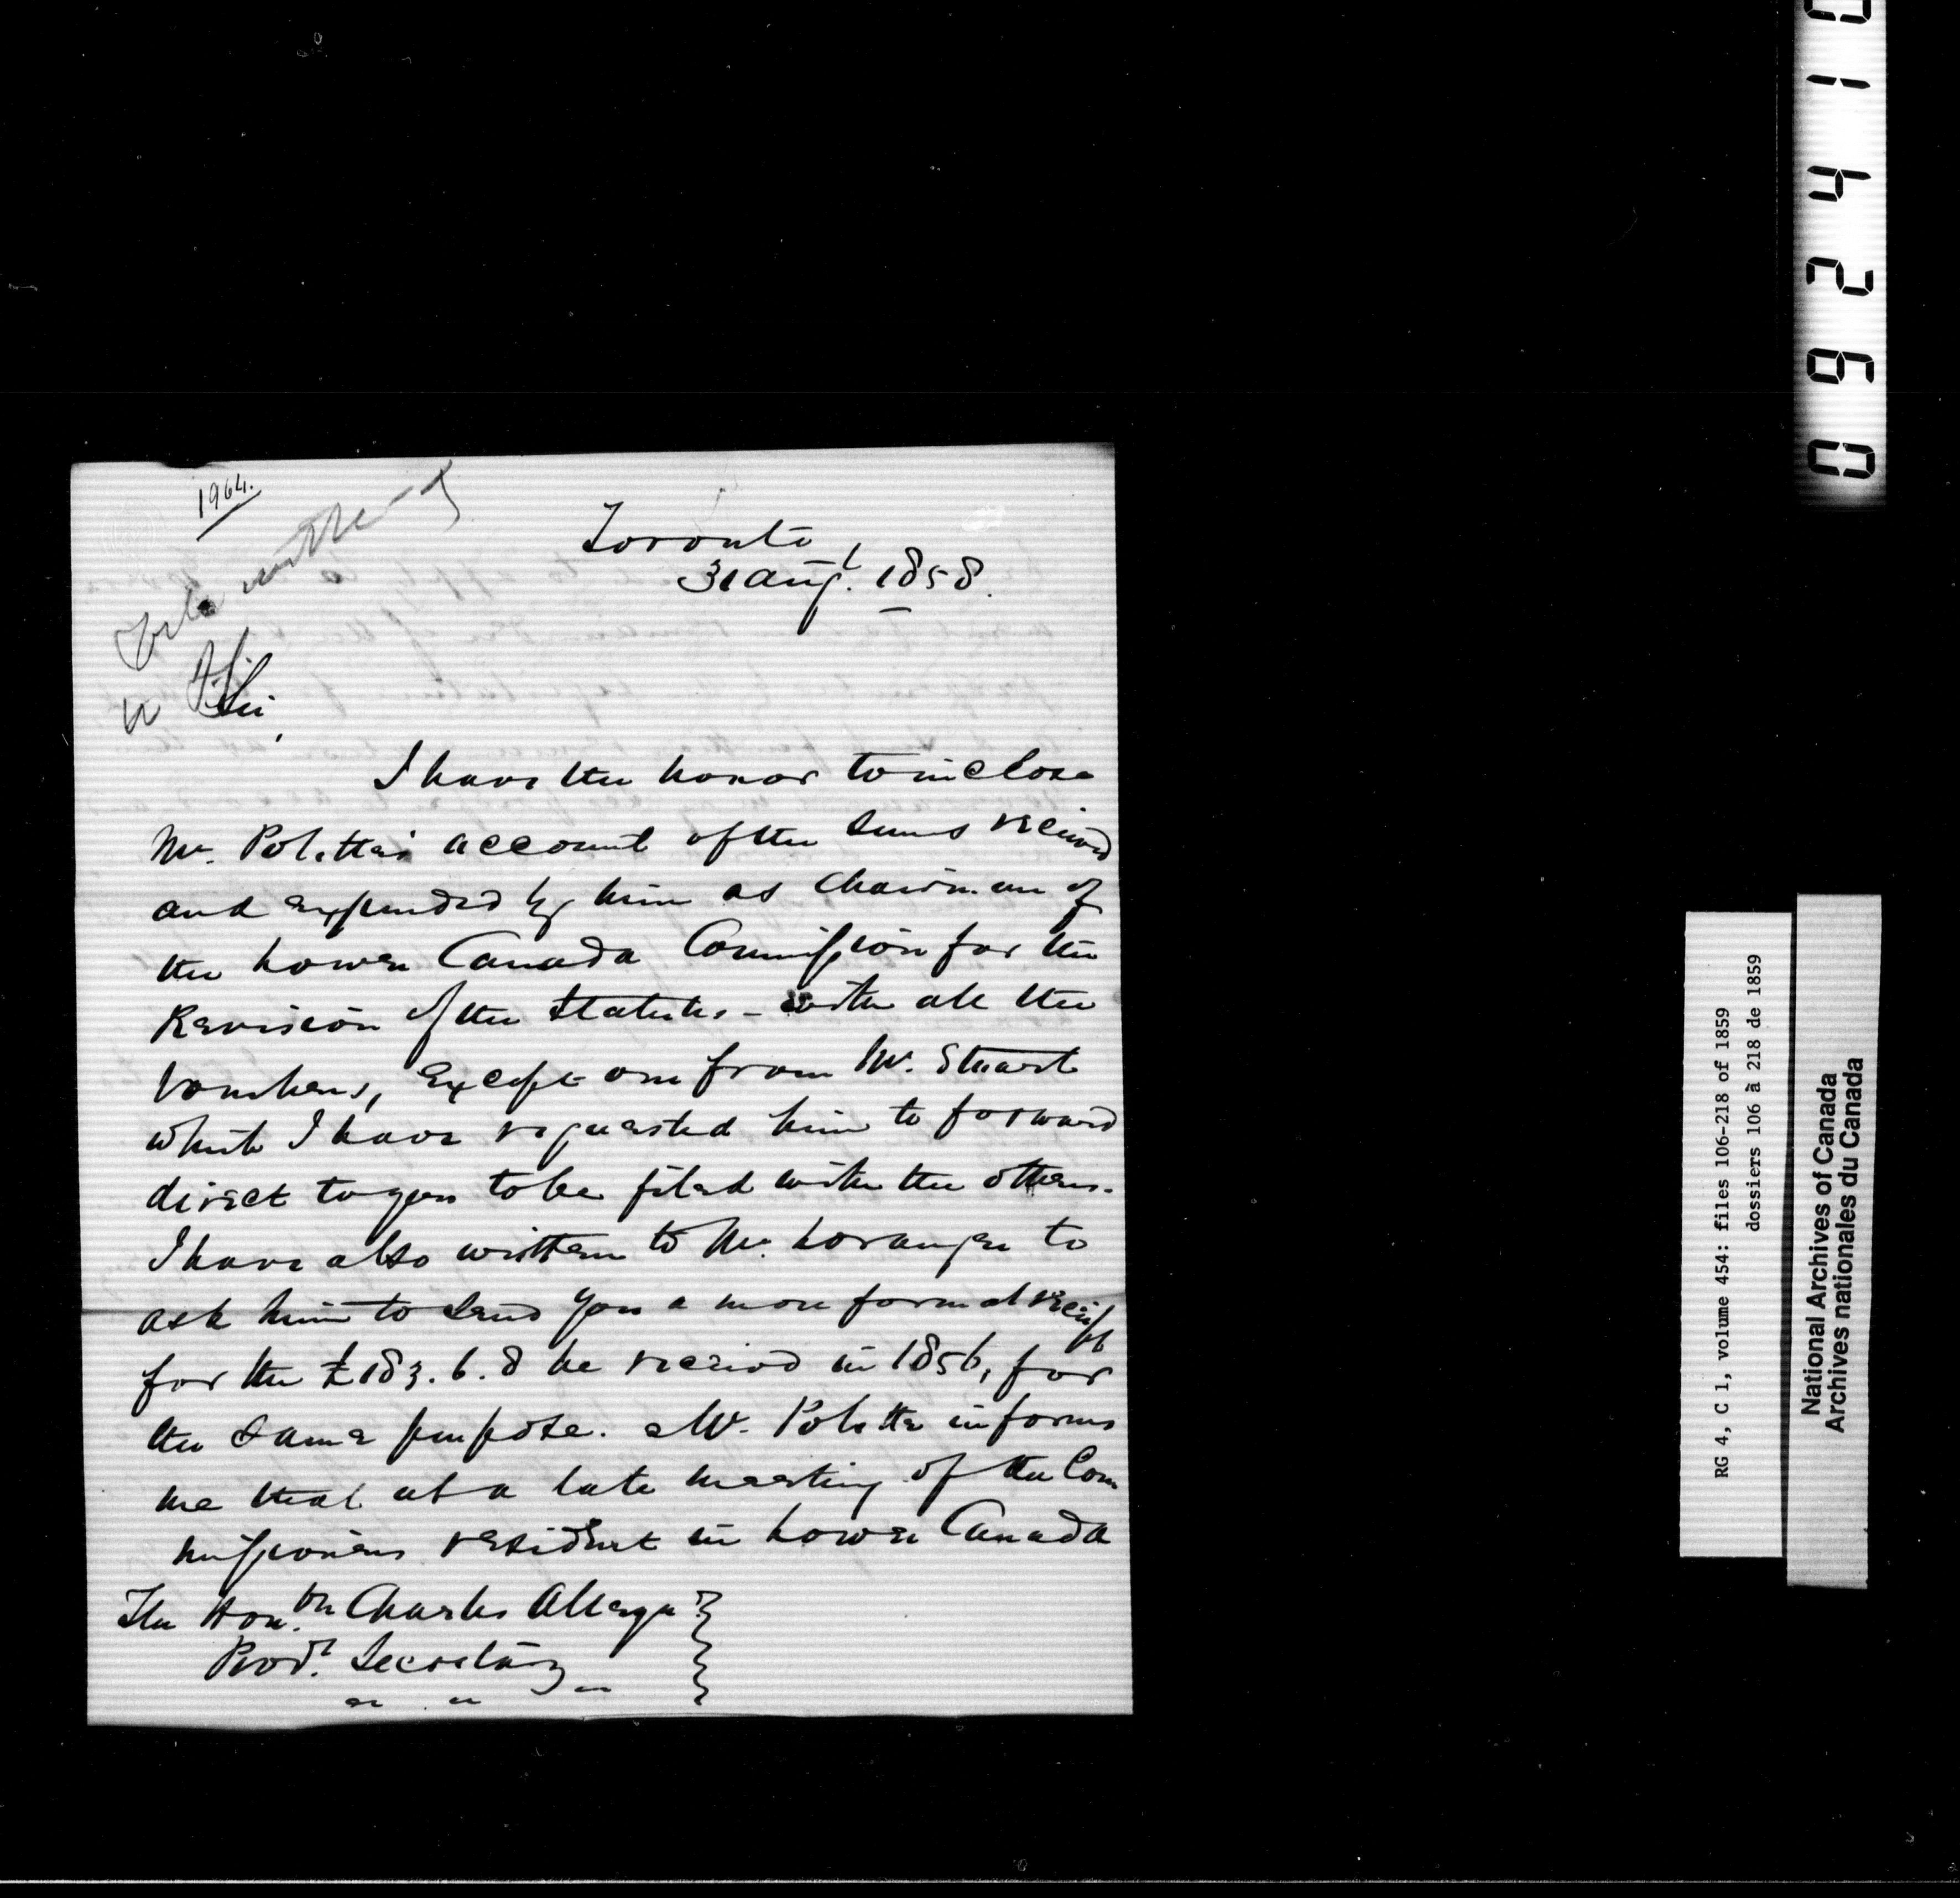 1964.
Toronto
31 Augt. 1858.
Sir,
I have the honor to inclose
Mr. Polette's account of the sums received
and expended by him as Chairman of
the Lower Canada Commission for the
Revision of the Statutes - with all the
Vouchers, Except one from Mr. Stuart
which I have requested him to forward
direct to you to be filed with the others.
I have also written to Mr. Loranger to
ask him to send you a more formal receipt
for the £183.6.8 he received in 1856, for
the same purpose. Mr. Polette informs
me that at a late meeting of the Com
missioners resident in Lower Canada
The Honble Charles Alleyn
Provl. Secretary
014260
RG 4, C 1, volume 454: files 106-218 of 1859
dossiers 106 à 218 de 1859
National Archives of Canada
Archives nationales du Canada